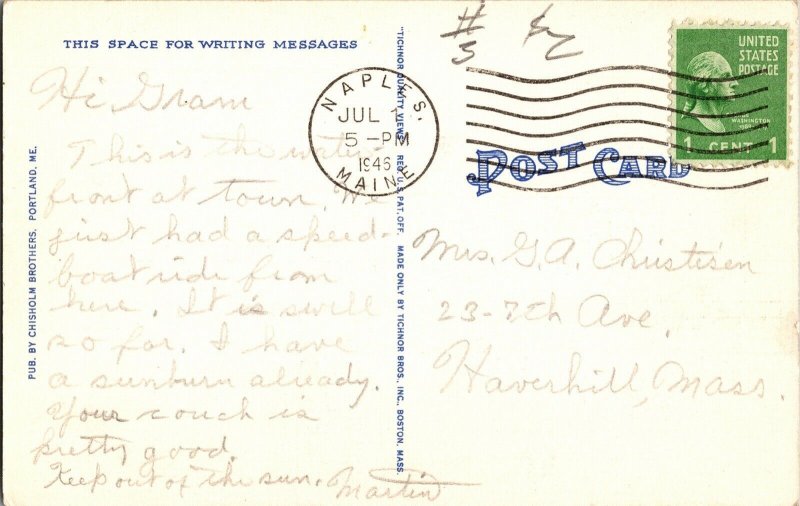 THIS SPACE FOR WRITING MESSAGES
Hi Gram
This is the water
front at town. We
just had a speed-
boat ride from
here. It is swell
so far. I have
a sunburn already.
Your couch is
pretty good.
Keep out of the sun. Martin
PUB. BY CHISHOLM BROTHERS, PORTLAND, ME.
"TICHNOR QUALITY VIEWS" REG. U. S. PAT. OFF. MADE ONLY BY TICHNOR BROS., INC., BOSTON, MASS.
#
5
NAPLES.
JUL 1
5-PM
1946
MAINE
UNITED
STATES
POSTAGE
WASHINGTON
1 CENT 1
POST CARD
Mrs. G. A. Christesen
23-7th Ave.
Haverhill, Mass.